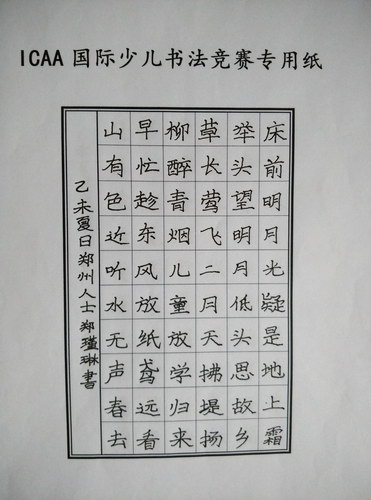 ICAA 国际少儿书法竞赛专用纸
床前明月光疑是地上霜
举头望明月低头思故乡
草长莺飞二月天拂堤扬
柳醉青烟儿童放学归来
早忙趁东风放纸鸢远看
山有色近听水无声春去
乙未夏日郑州人士郑瑾琳書